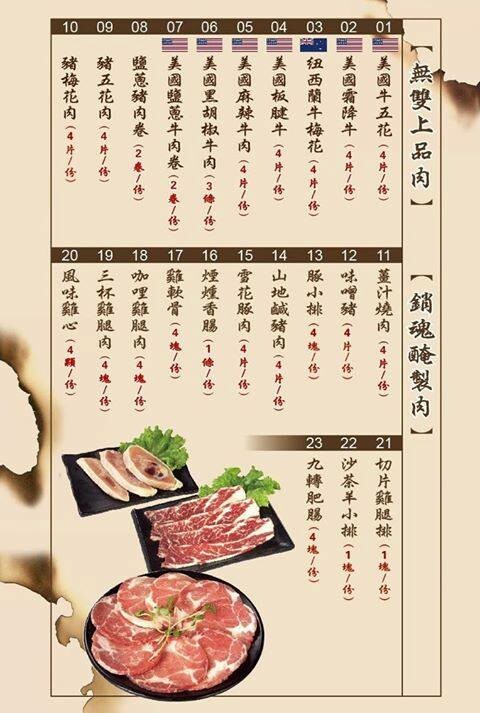 【無雙上品肉】
01 美國牛五花(4片/份)
02 美國霜降牛(4片/份)
03 紐西蘭牛梅花(4片/份)
04 美國板腱牛(4片/份)
05 美國麻辣牛肉(4片/份)
06 美國黑胡椒牛肉(3條/份)
07 美國鹽蔥牛肉卷(2卷/份)
08 鹽蔥豬肉卷(2卷/份)
09 豬五花肉(4片/份)
10 豬梅花肉(4片/份)
【銷魂醃製肉】
11 薑汁燒肉(4片/份)
12 味噌豬(4片/份)
13 豚小排(4塊/份)
14 山地鹹豬肉(4片/份)
15 雪花豚肉(4片/份)
16 煙燻香腸(1條/份)
17 雞軟骨(4塊/份)
18 咖哩雞腿肉(4塊/份)
19 三杯雞腿肉(4塊/份)
20 風味雞心(4顆/份)
21 切片雞腿排(1塊/份)
22 沙茶羊小排(1塊/份)
23 九轉肥腸(4塊/份)